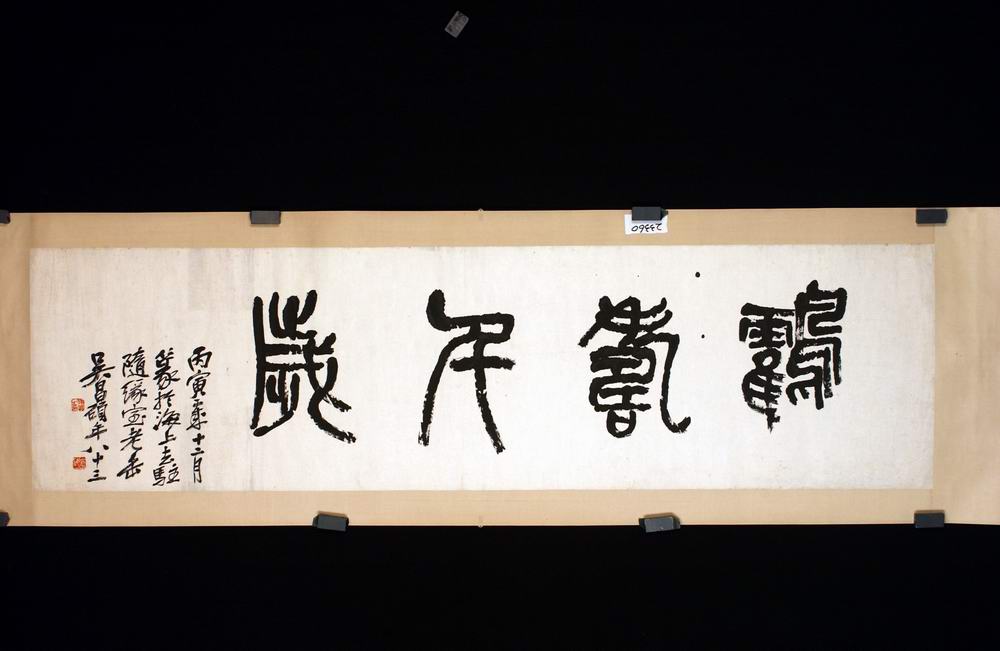 鶴壽千歲
丙寅年十二月
篆於海上去駐
隨緣室老缶
吳昌碩年八十三
23360